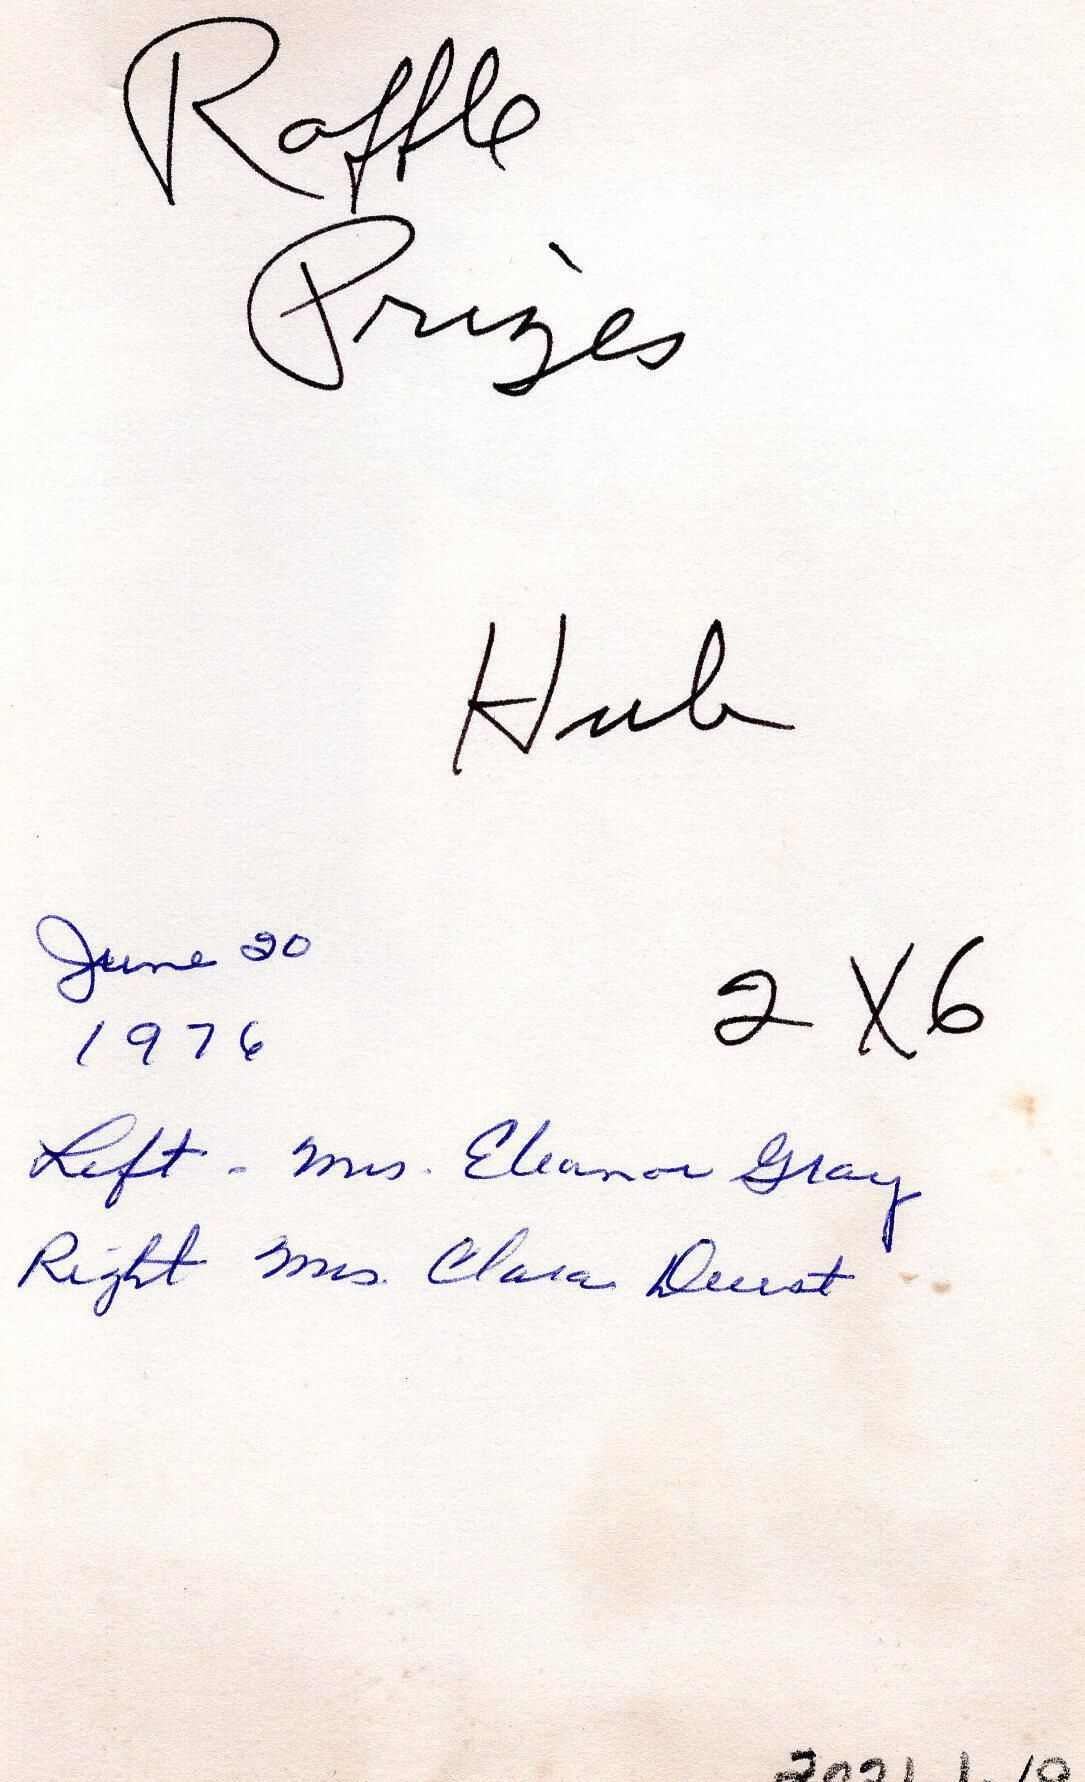 Raffle
Prizes
Hub
June 20
1976
2 X 6
Left - Mrs. Eleanor Gray
Right Mrs. Clara Durst
2021.1.18